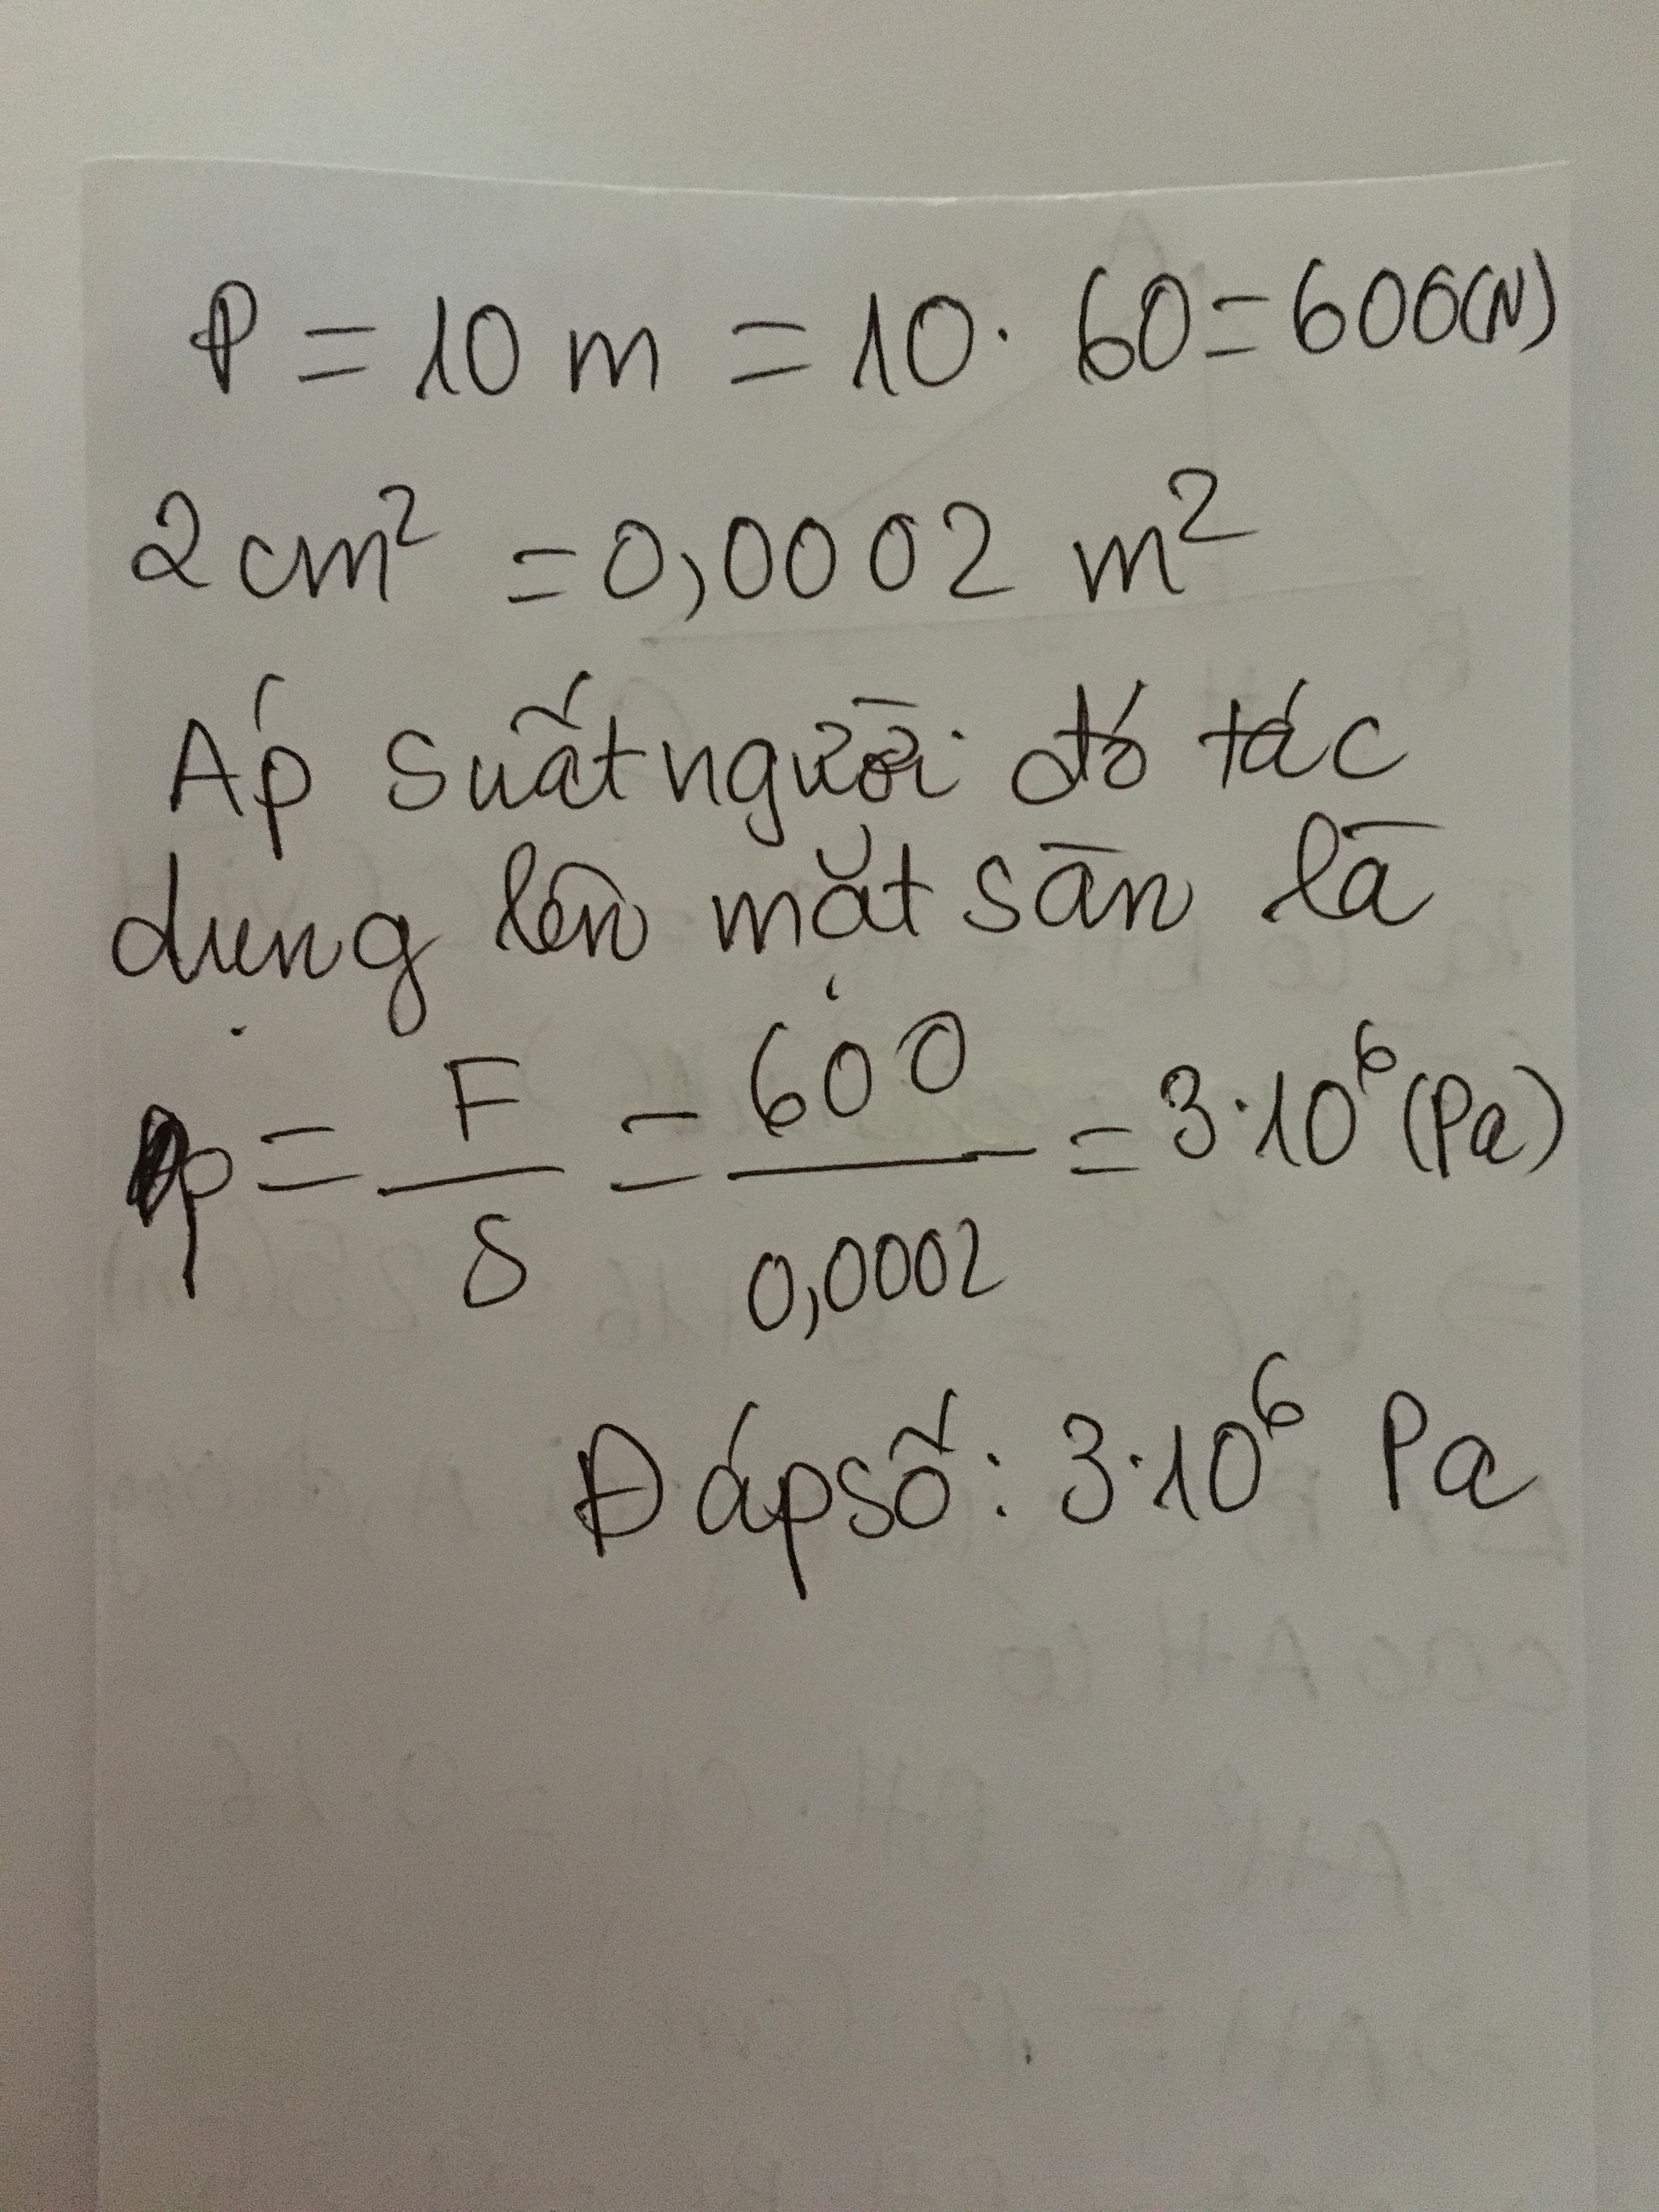 P = 10 m = 10 . 60 = 600 (N)
2 cm² = 0,0002 m²
Áp suất người đó tác
dụng lên mặt sàn là
p = F/S = 600/0,0002 = 3.10⁶ (Pa)
Đáp số: 3.10⁶ Pa